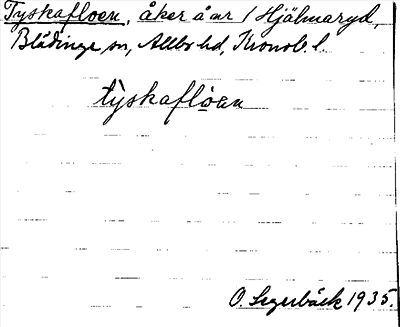 Tyskafloen, åker å nr 1 Hjälmaryd,
Blädinge sn, Allbo hd, Kronob. l.
tỳskafloen
O. Segerbäck 1935.